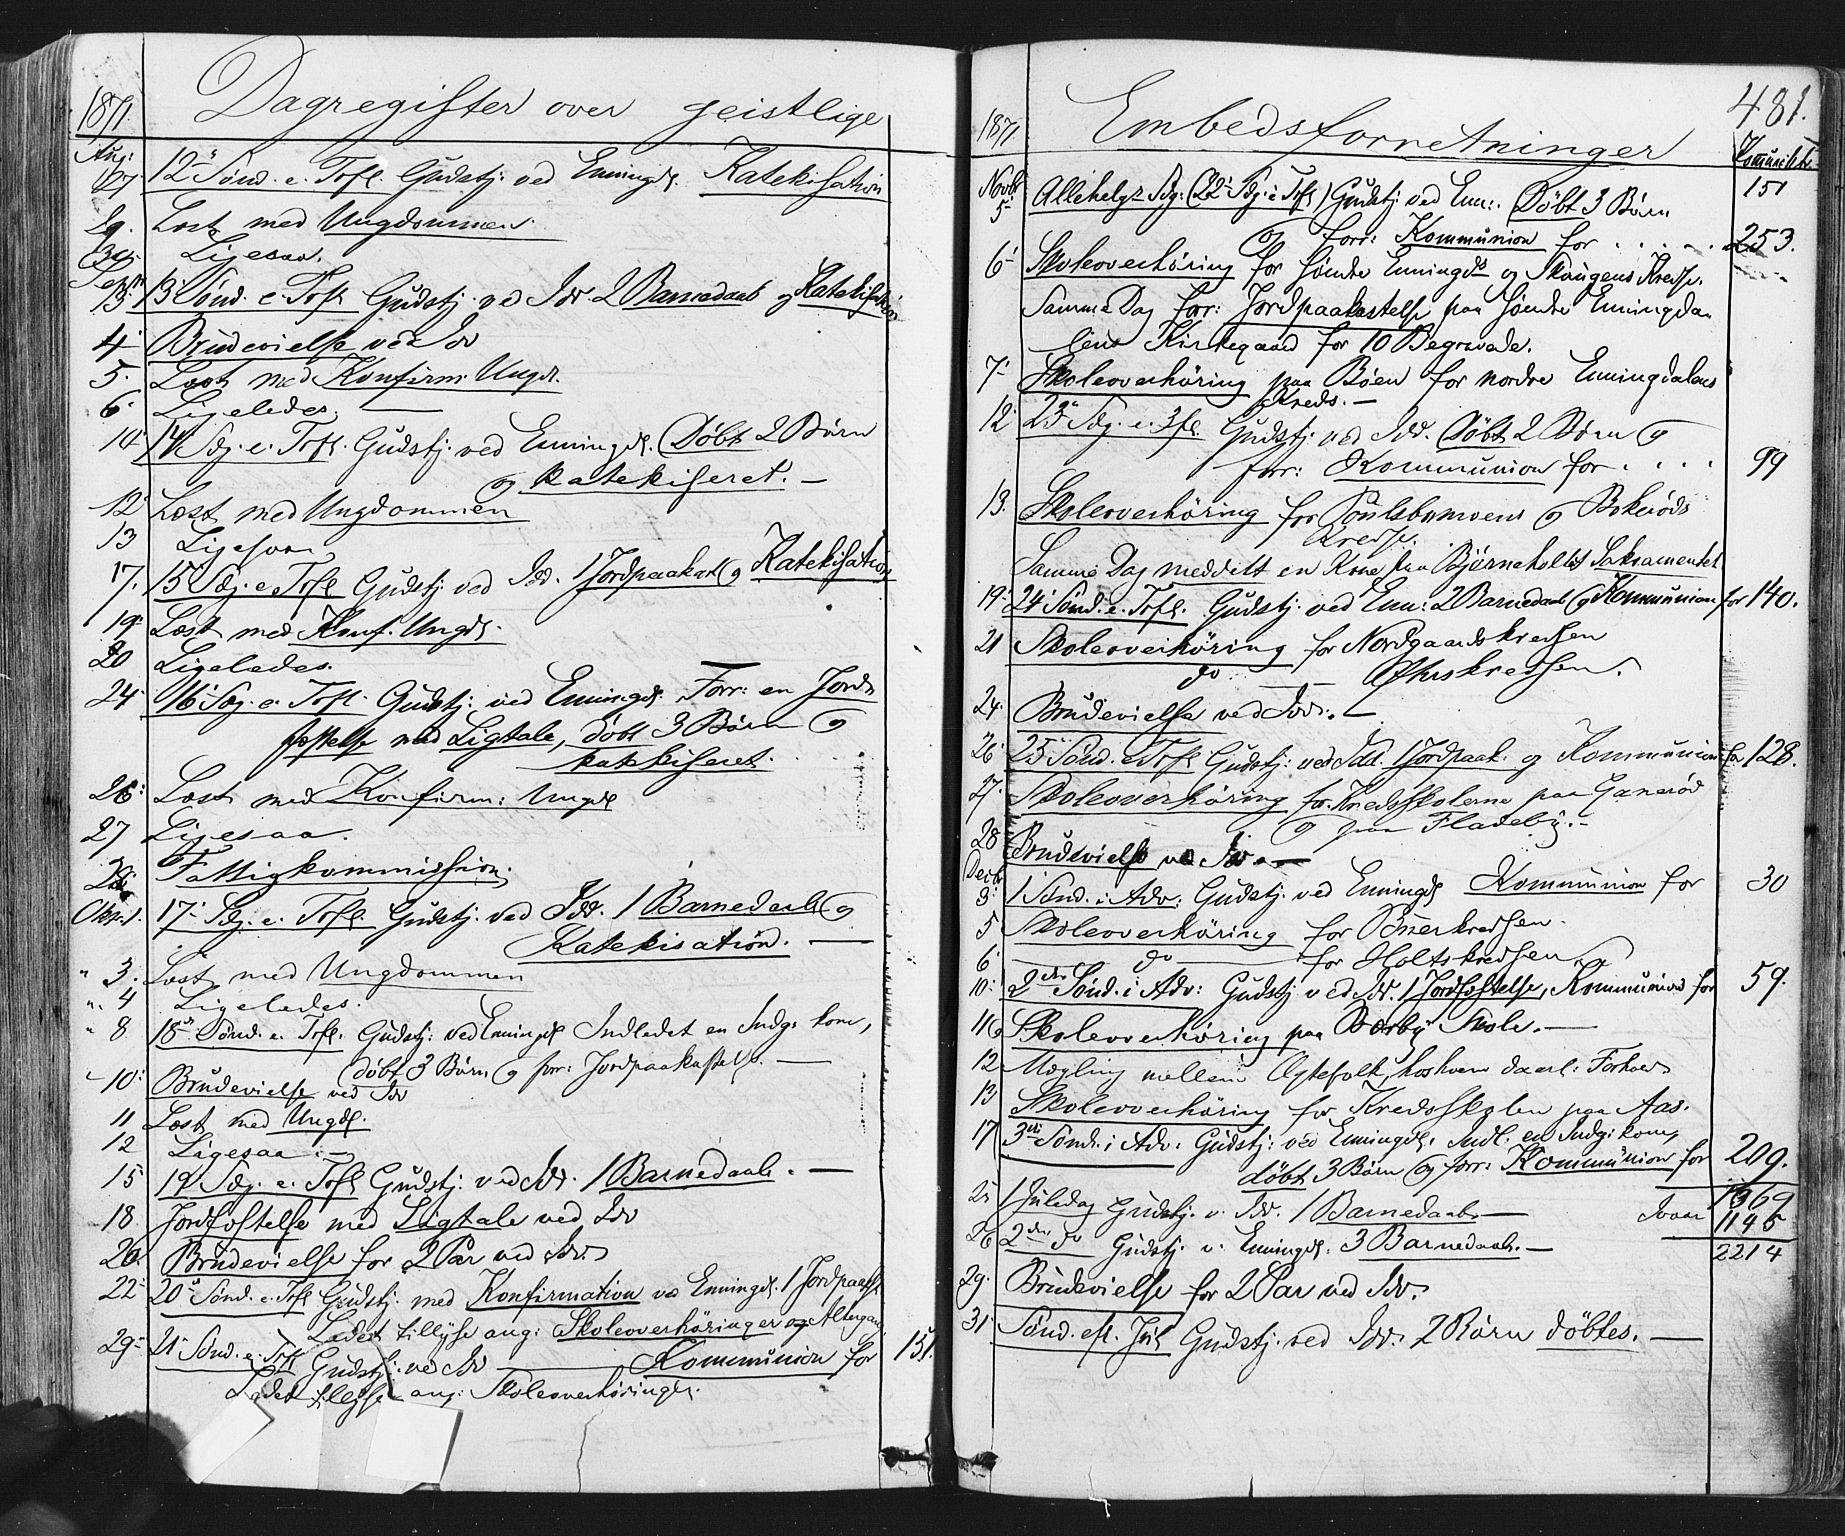 1871. Dagregister over geistlige
Aug: 27 12 Sønd. e. Trfl. Gudstj. ved Enningd. Katekisation
29. Læst med Ungdommen.
30. Ligesaa.
Septbr 3. 13 Sønd. e. Trfl. Gudstj. ved Idd 2 Barnedaab og Katekisation
4. Brudevielse ved Idd
5. Læst med Konfirm. Ungd.
6. Ligeledes. —
14 Sdg. e. Trfl. Gudstj. ved Enningd. Døbt 2 Børn
og katekiseret. —
12 Læst med Ungdommen
13 Ligesaa
17. 15 Sdg. e. Trfl. Gudstj. ved Idd. 1 Jordpaakast. og Katekisation
19 Læst med Konf. Ungd.
20 Ligeledes.
24 16 Sdg. e. Trfl. Gudstj. ved Enningd. Forr: en Jord-
fæstelse med Ligtale, døbt 3 Børn og
katekiseret.
26: Læst med Konfirm: Ungd
27 Ligesaa.
28 Fattigkommission.
Oktbr 1. 17 Sdg. e. Trfl. Gudstj. ved Idd. 1 Barnedaab og
Katekisation. —
" 3. Læst med Ungdommen
" 4 Ligeledes.
" 8. 18de Sønd. e. Trfl. Gudstj: ved Enningd Indledet en Indg: kone,
døbt 3 Børn og forr: Jordpaakastelse. —
10: Brudevielse ved Idd
11 Læst med Ungd.
12 Ligesaa. —
15 19 Sdg. e. Trfl Gudstj. ved Idd. 1 Barnedaab. —
18. Jordfæstelse med Ligtale ved Idd
20. Brudevielse for 2 Par ved Idd.
22 20 Sønd. e. Trfl Gudstj. med Konfirmation ved Enningd. 1 Jordpaak.
Ladet tillyse ang: Skoleoverhøringer og Altergang
29 21 Sønd. e. Trfl Gudstj: ved Idd — Kommunion for 151.
Ladet tillyse ang: Skoleoverhøringer.
481.
1871 Embedsforretninger Kommunik.
151
Novbr 5 Allehelgs Sdg: (22 Sdg. e. Trfl) Gudstj: ved Enn:. Døbt 3 Børn
og forr: Kommunion for . . . . 253.
6 Skoleoverhøring for søndre Enningds og Skougens Kredse.
Samme Dag forr: Jordpaakastelse paa søndre Enningda-
lens Kirkegaard for 10 Begravede.
7 Skoleoverhøring paa Bøen for nordre Enningdalens
Kreds. —
12 23 Sdg. e. Trfl. Gudstj. ved Idd. Døbt 2 Børn og
forr: Kommunion for . . . . 99
13. Skoleoverhøring for Poulsbomoens og Bokerøds
Kredse.
Samme Dag meddelt en Kone paa Bjørneholtet Sakramentet
19 24 Sønd. e. Trfl. Gudstj: ved Enn: 2 Barnedaab og Kommunion for 140.
21 Skoleoverhøring for Nordgaardskredsen
do — kredsen.
24. Brudevielse ved Idd. —
26 25 Sønd. e Trfl Gudstj: ved Idd. 1 Jordpaak. og Kommunion for 128.
27. Skoleoverhøring for Kredsskolerne paa Ganerød
og paa Fladeby. —
28 Brudevielse ved Idd. —
Decbr 3 1 Sønd. i Adv: Gudstj: ved Enningd Kommunion for 30
5 Skoleoverhøring for kredsen.
6 do — for Holtskredsen.
10: 2den Sønd. i Adv: Gudstj ved Idd. 1 Jordfæstelse, Kommunion for 59.
11 Skoleoverhøring paa Berby Skole. —
12 Mægling mellem Ægtefolk, hos hvem daarl. Forhold
13 Skoleoverhøring for Kredsskolen paa Aas.
17 3die Sønd. i Adv: Gudstj: ved Enningd. Indl. en Indg: kone,
døbt 3 Børn og forr: Kommunion for 209.
1069
25 1 Juledag Gudstj. v. Idd. 1 Barnedaab. — 1145
26 2den do Gudstj. v. Enningd. 3 Barnedaab. — 2214
29. Brudevielse for 2 Par ved Idd.
31 Sønd. eft. Jul Gudstj. ved Idd. 2 Børn døbtes. —